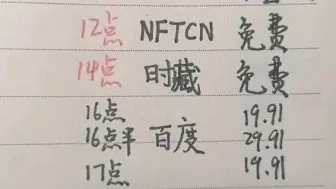 12点 NFTCN 免费
14点 时藏 免费
16点 19.91
16点半 百度 29.91
17点 19.91